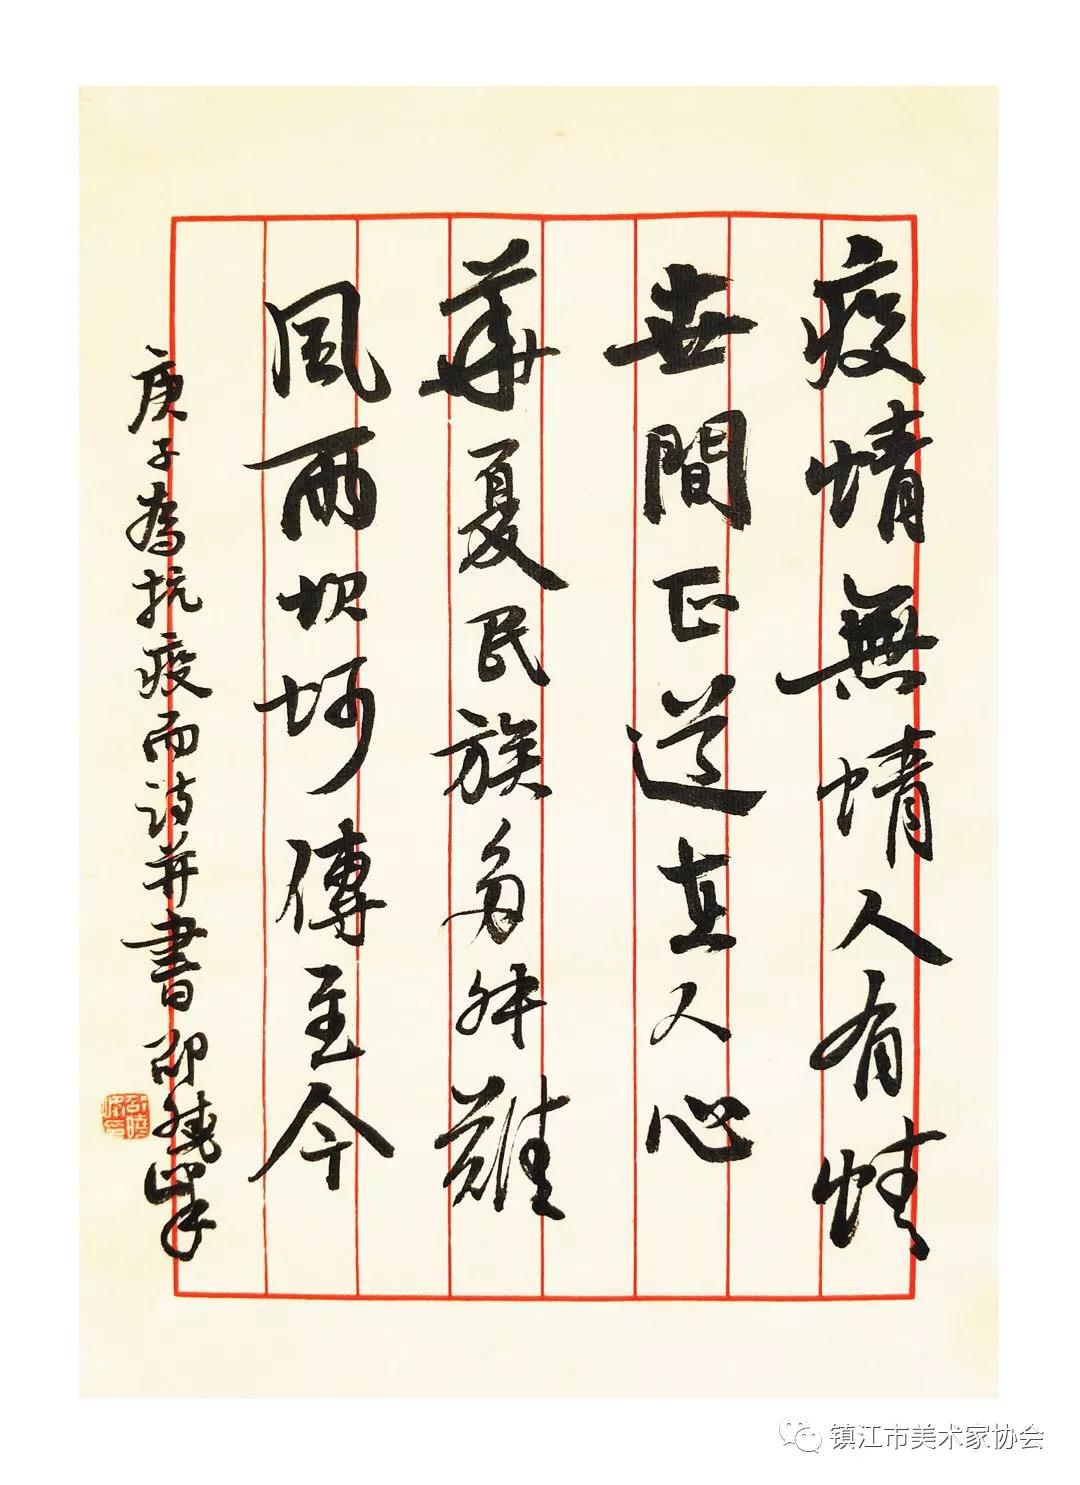 疫情無情人有情
世間正道在人心
華夏民族多舛難
風雨坎坷傳至今
庚子為抗疫而詩并書邵曉峰
邵曉峰印
镇江市美术家协会